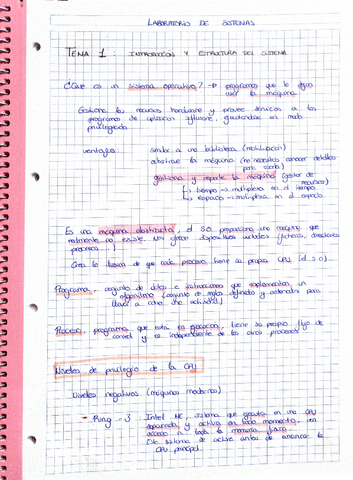 LABORATORIO DE SISTEMAS
TEMA 1: INTRODUCCIÓN Y ESTRUCTURA DEL SISTEMA
¿Qué es un sistema operativo? → programas que te dejan
usar la máquina.
Gestiona los recursos hardware y provee servicios a los
programas de aplicación software, ejecutándose en modo
privilegiado
ventajas: similar a una biblioteca (reutilización)
abstrae la máquina (no necesitas conocer detalles
para usarla)
gestiona y reparte la máquina (gestor de
recursos)
↳ tiempo → multiplexa en el tiempo
↳ espacio → multiplexa en el espacio.
Es una máquina abstracta, el SO proporciona una máquina que
realmente no existe. Nos ofrece dispositivos virtuales (ficheros, directorios
procesos...)
Crea la ilusión de que cada proceso tiene su propia CPU
Programa, conjunto de datos e instrucciones que implementan un
algoritmo (conjunto de reglas definidas y ordenadas para
llevar a cabo una actividad)
Proceso, programa que está en ejecución, tiene su propio flujo de
control y es independiente de los otros procesos
Niveles de privilegio de la CPU
Niveles negativos (máquinas modernas)
- Ring -3 Intel ME, sistema que ejecuta en una CPU
separada y activa en todo momento, con
acceso a toda la memoria física.
Este sistema se activa antes de arrancar la
CPU principal.